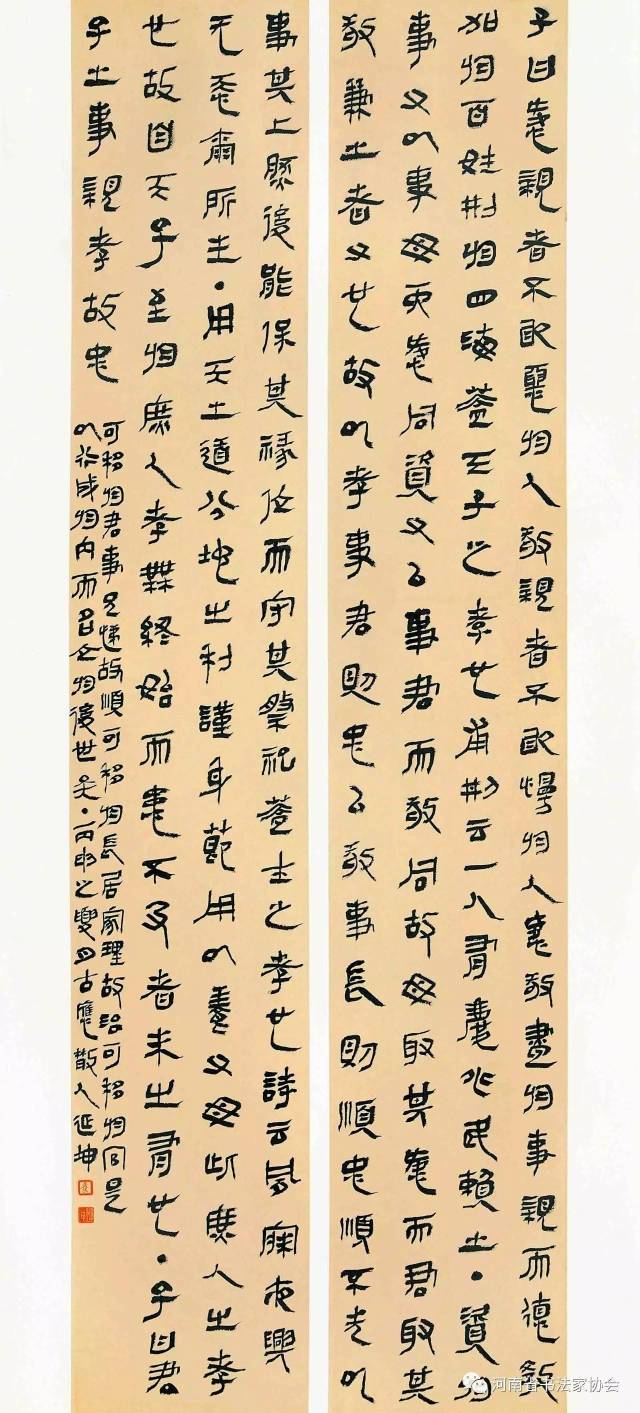 子曰愛親者不敢惡於人敬親者不敢慢於人愛敬盡於事親而德教
加於百姓刑於四海蓋天子之孝也甫刑云一人有慶兆民賴之·資於
事父以事母而愛同資父以事君而敬同故母取其愛而君取其
敬兼之者父也故以孝事君則忠以敬事長則順忠順不失以
事其上然後能保其祿位而守其祭祀蓋士之孝也詩云夙夜興
无忝爾所生·用天之道分地之利謹身節用以養父母此庶人之孝
也故自天子至於庶人孝無終始而患不及者未之有也·子曰君
子之事親孝故忠
可移於君事兄悌故順可移於長居家理故治可移於官是
以行成於内而名立於後世矣·丙申之夏月古應散人延坤
河南省书法家协会